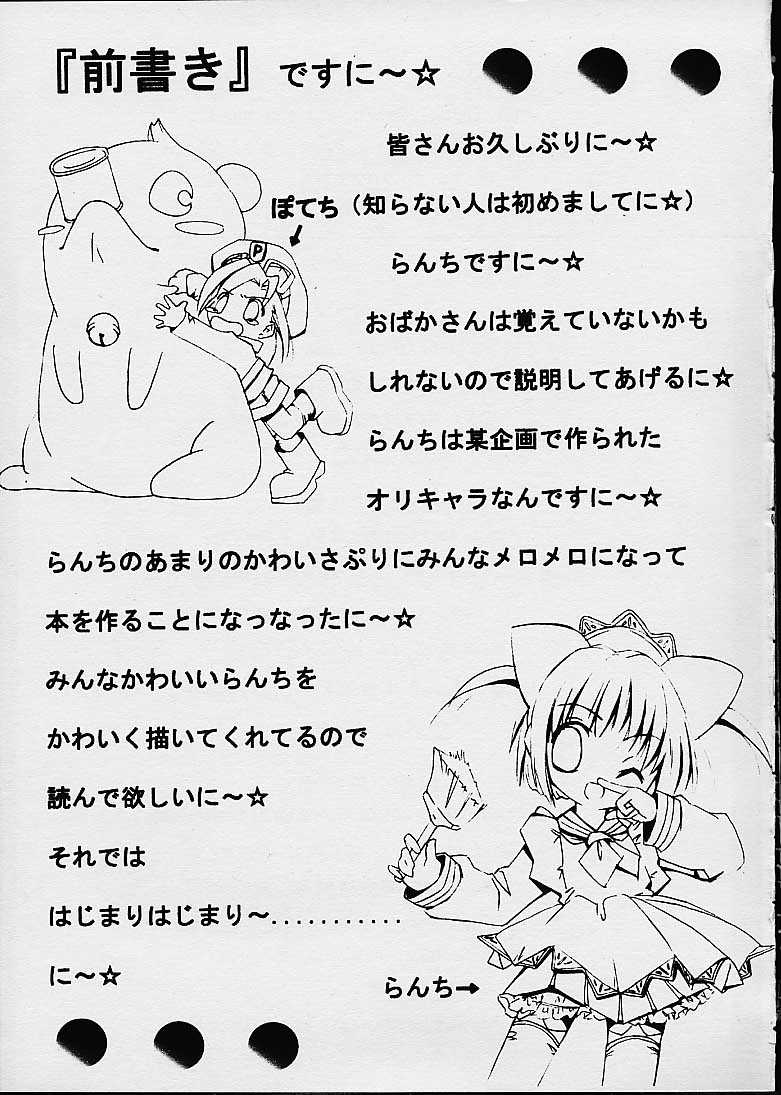 『前書き』ですに～☆
皆さんお久しぶりに～☆
（知らない人は初めましてに☆）
ぽてち
↓
P
らんちですに～☆
おばかさんは覚えていないかも
しれないので説明してあげるに☆
らんちは某企画で作られた
オリキャラなんですに～☆
らんちのあまりのかわいさぷりにみんなメロメロになって
本を作ることになっなったに～☆
みんなかわいいらんちを
かわいく描いてくれてるので
読んで欲しいに～☆
それでは
はじまりはじまり～...........
に～☆
らんち→